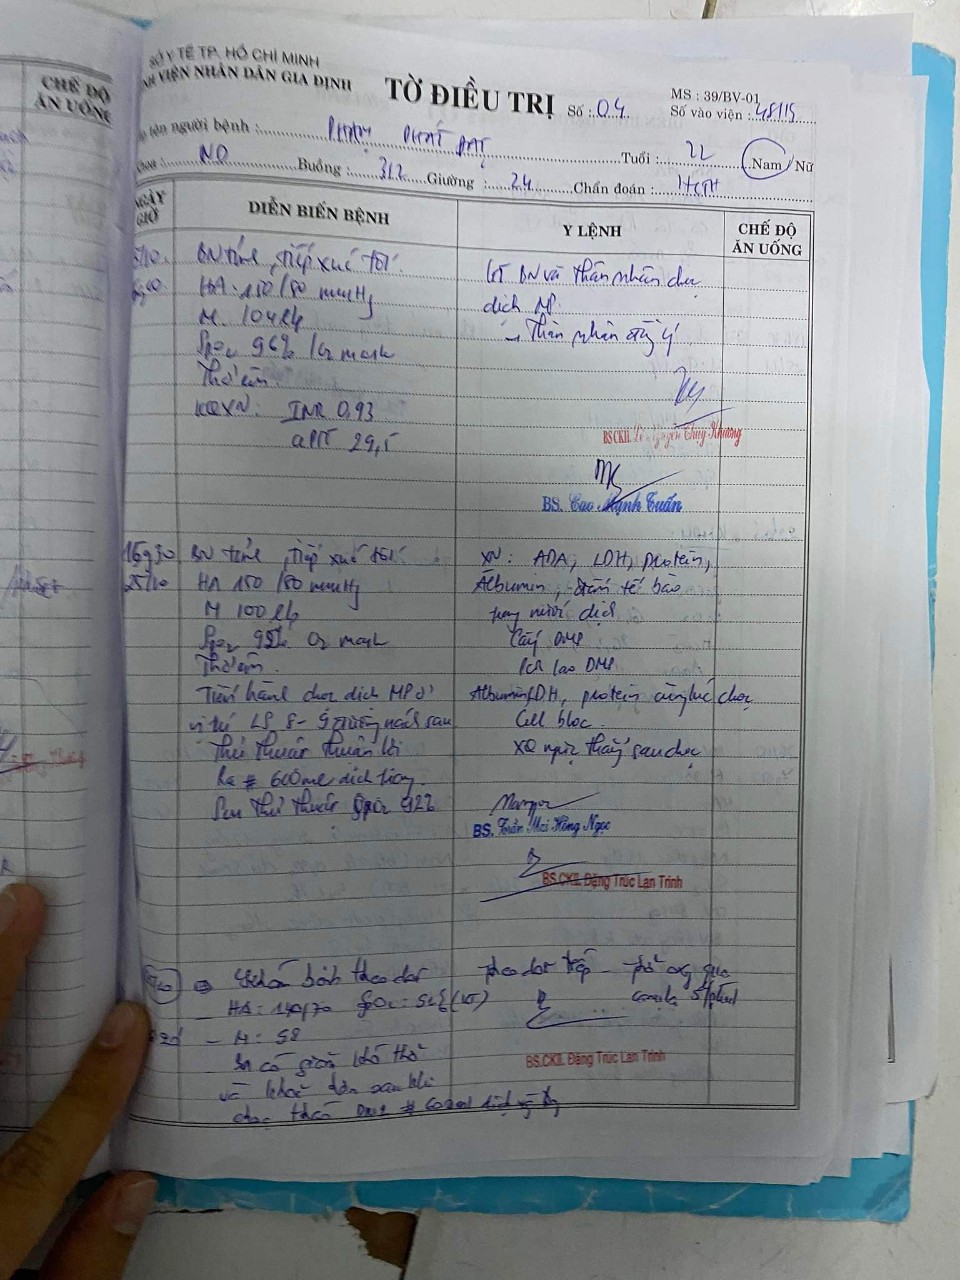 CHẾ ĐỘ
ĂN UỐNG
SỞ Y TẾ TP. HỒ CHÍ MINH
VIỆN NHÂN DÂN GIA ĐỊNH
TỜ ĐIỀU TRỊ
Số :.04
MS : 39/BV-01
Số vào viện :
tên người bệnh : PHẠM PHÁT ĐẠT Tuổi : 22 Nam / Nữ
Buồng : 312 Giường : 24 Chẩn đoán :
NGÀY
GIỜ
DIỄN BIẾN BỆNH
Y LỆNH
CHẾ ĐỘ
ĂN UỐNG
BN tỉnh, tiếp xúc tốt
HA: 150/80 mmHg
M. 104 l/p
SpO2 96% /O2 mask
Thở êm
KQXN: INR 0,93
aPTT 29,5
BN và thân nhân chọc
dịch MP
→ Thân nhân đồng ý
BSCKII. Lê Nguyễn Thùy Khương
BS. Cao Mạnh Tuấn
16g30
25/10
BN tỉnh, tiếp xúc tốt
HA 150/80 mmHg
M 100 l/p
SpO2 95% O2 mask
Thở êm
Tiến hành chọc dịch MP ở
vị trí LS 8-9 đường nách sau
Thủ thuật thuận lợi
Ra # 600ml dịch
Sau thủ thuật SpO2 92%
XN: ADA, LDH, protein,
Albumin, đếm tế bào
trong nước dịch
Cấy DMP
PCR lao DMP
Albumin, LDH, protein cùng lúc chọc
Cell bloc
XQ ngực thẳng sau chọc
BS. Trần Mai Hồng Ngọc
BS.CKII. Đặng Trúc Lan Trinh
Khám bệnh theo dõi
- HA: 140/70
- M: 98
BN có giảm khó thở
và khoẻ hơn sau khi
theo dõi tiếp
BS.CKII. Đặng Trúc Lan Trinh